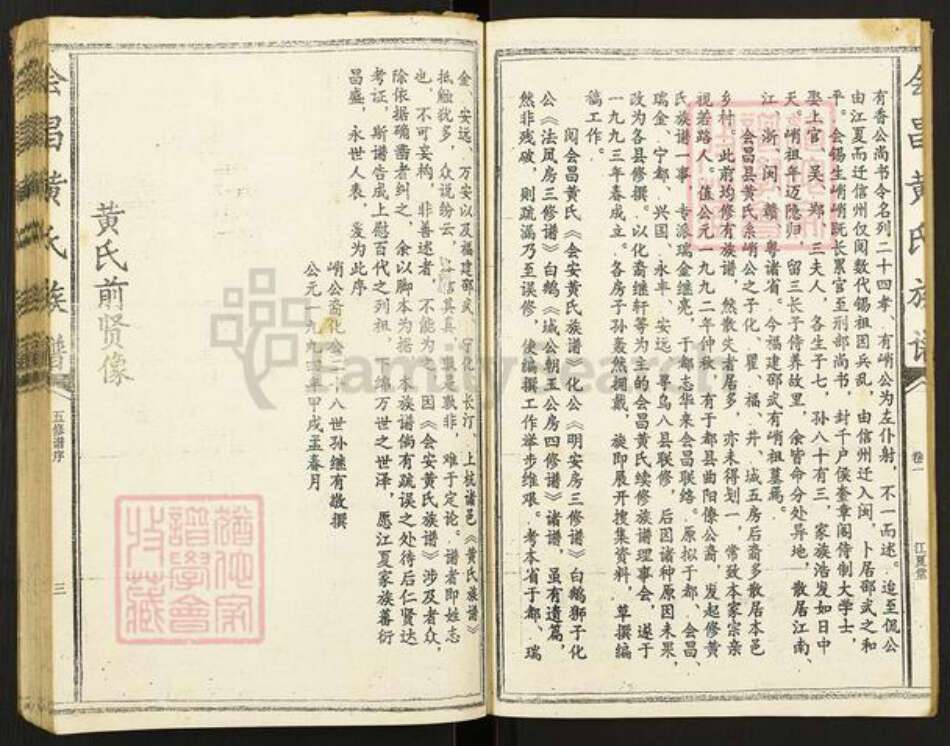 会昌黄氏族谱
卷一
江夏堂
有香公尚书令名列二十四孝、有峭公为左仆射，不一而述。迨至侃公
由江夏而迁信州仅阅数代锡祖因兵乱，由信州迁入闽，卜居邵武之和
平。会锡生峭峭既长累官至刑部尚书，封千户侯奎章阁侍制大学士，
娶上官、吴、郑、三夫人，各生子七，孙八十有三，家族浩发如日中
天。峭祖年迈隐归，留三长子侍养故里，余皆命分处异地，散居江南、
江、浙、闽、赣、粤诸省。今福建邵武有峭祖墓焉。
会昌县黄氏系峭公之子化、瞿、福、井、城五房后裔多散居本邑
乡村。此前均修有族谱，然散失者居多，亦未得划一，常致本家宗亲
视若路人。值公元一九九二年仲秋，有于都县曲阳僚公裔，发起修黄
氏族谱一事，专派瑞金继亮，于都志华来会昌联络。原拟于都、会昌、
瑞金、宁都、兴国、永丰、安远、寻乌八县联修，后因诸种原因未果，
改为各县修撰。以化裔继轩等为主的会昌黄氏续修族谱理事会，遂于
一九九三年春成立。各房子孙轰然拥戴，旋即展开搜集资料，草撰编
稿工作。
阅会昌黄氏《会安黄氏族谱》化公《明安房三修谱》白鹅狮子化
公《法凤房三修谱》白鹅《城公朝王公房四修谱》诸谱，虽有遗篇，
然非残破，则疏漏乃至误修，使编撰工作举步维艰。考本省于都、瑞
金、安远、万安以及福建邵武、宁化、长汀、上杭诸邑《黄氏族谱》
抵触犹多，众说纷云，信其真，孰是孰非，难于定论。谱者即姓志
也，不可妄构，非善述者，不能为之。因《会安黄氏族谱》涉及者众，
除依据确凿者纠之，余以脚本为据。本族谱倘有疏误之处待后仁贤达
考证，斯谱告成上慰百代之列祖，下绵万世之世泽，愿江夏家族蕃衍
昌盛，永世人表，爰为此序
峭公裔化公二十八世孙继有敬撰
公元一九九四年甲戌孟春月
黄氏前贤像
会昌黄氏族谱
五修谱序
三
FamilySearch
谱学会
收藏